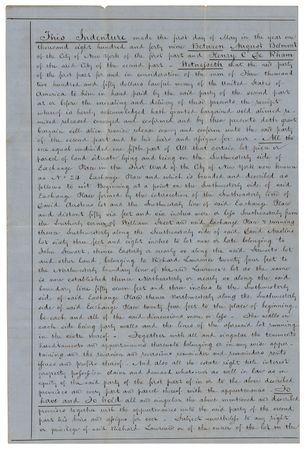 This Indenture made the first day of May in the year one
thousand eight hundred and forty nine Between August Belmont
of the City of New York of the first part and Henry C De Rham
of the said City of the second part Witnesseth that the said party
of the first part for and in consideration of the sum of Nine thousand
two hundred and fifty dollars lawful money of the United States of
America to him in hand paid by the said party of the second part
at or before the ensealing and delivery of these presents the receipt
whereof is hereby acknowledged hath granted bargained sold aliened re-
mised released conveyed and confirmed and by these presents doth grant
bargain sell alien remise release convey and confirm unto the said party
of the second part and to his heirs and assigns for ever All the
one equal undivided part of All that certain lot piece or
parcel of land situate lying and being on the Southwesterly side of
Exchange Place in the First Ward of the City of New York now known
as No 24 Exchange Place and which is bounded and described as
follows to wit Beginning at a point on the Southwesterly side of said
Exchange Place formed by the intersection of the Southeasterly line of
land and the Southwesterly line of said Exchange Place
and distant fifty six feet and six inches more or less Southeasterly from the
corner of William Street and Exchange Place running
thence Southwesterly along the Southeasterly side of said land
lot sixty three feet and eight inches to lot now or late belonging to
John thence Easterly or nearly so along the said lot
and other land belonging to Richard Lawrence twenty four feet to
the Northwesterly boundary line of the said Lawrence's lot as the same
is now established thence Northeasterly or nearly so along the said
boundary line fifty seven feet and three inches to the Southwesterly
side of said Exchange Place thence Northwesterly along the Southwesterly
side of said Exchange Place twenty four feet to the place of beginning
be each and all of the said dimensions more or less The walls on
each side being party walls and the lines of the aforesaid lot running
in the centre thereof Together with all and singular the tenements
hereditaments and appurtenances thereunto belonging or in any wise apper-
taining and the reversion and reversions remainder and remainders rents
issues and profits thereof And also all the estate right title interest
property possession claim and demand whatsoever as well in law as in
equity of the said party of the first part of in or to the above described
premises and every part and parcel thereof with the appurtenances To
have and To hold all and singular the above mentioned and described
premises together with the appurtenances unto the said party of the second
part his heirs and assigns for ever Subject nevertheless to any right
or privilege of said Richard Lawrence or of the owner of the lot in the